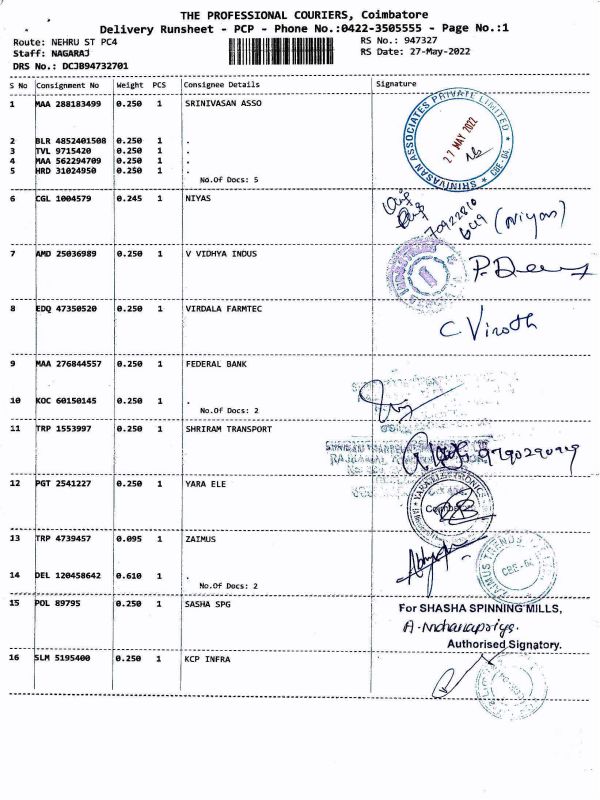 THE PROFESSIONAL COURIERS, Coimbatore
Delivery Runsheet - PCP - Phone No.:0422-3505555 - Page No.:1
Route: NEHRU ST PC4 RS No.: 947327
Staff: NAGARAJ RS Date: 27-May-2022
DRS No.: DCJB94732701
S No Consignment No Weight PCS Consignee Details Signature
1 MAA 288183499 0.250 1 SRINIVASAN ASSO
SRINIVASAN ASSOCIATES PRIVATE LIMITED * CBE-04. *
27 MAY 2022
2 BLR 4852401508 0.250 1 .
3 TVL 9715420 0.250 1 .
4 MAA 562294709 0.250 1 .
5 HRD 31024950 0.250 1 .
No.Of Docs: 5
6 CGL 1004579 0.245 1 NIYAS
70922810
649 (Niyas)
7 AMD 25036989 0.250 1 V VIDHYA INDUS
8 EDQ 47350520 0.250 1 VIRDALA FARMTEC
C. Viroth
9 MAA 276844557 0.250 1 FEDERAL BANK
10 KOC 60150145 0.250 1 .
No.Of Docs: 2
11 TRP 1553997 0.250 1 SHRIRAM TRANSPORT
12 PGT 2541227 0.250 1 YARA ELE
13 TRP 4739457 0.095 1 ZAIMUS
ZAIMUS TRENDS
CBE-64
14 DEL 120458642 0.610 1 .
No.Of Docs: 2
15 POL 89795 0.250 1 SASHA SPG
For SHASHA SPINNING MILLS,
Authorised Signatory.
16 SLM 5195400 0.250 1 KCP INFRA